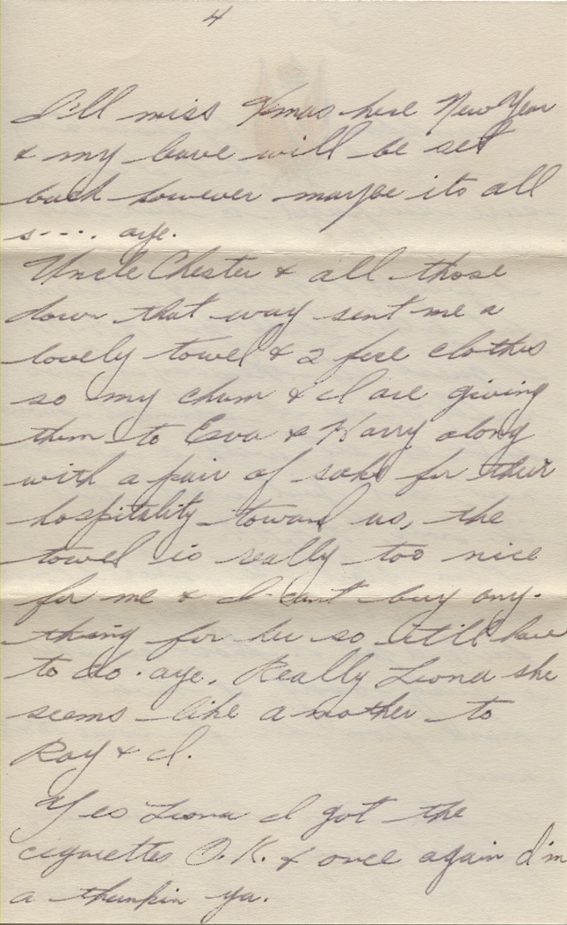 4
I'll miss Xmas here New Year
& my leave will be set
back however maybe its all
s---- aye.
Uncle Chester & all those
down that way sent me a
lovely towel & 2 face clothes
so my chum & I are giving
them to Eva & Harry along
with a pair of soks for their
hospitality toward us, the
towel is really too nice
for me & I cant buy any-
thing for her so it'll have
to do. aye. Really Leona she
seems like a mother to
Ray & I.
Yes Leona I got the
cigarettes O.K. & once again I'm
a thankin ya.